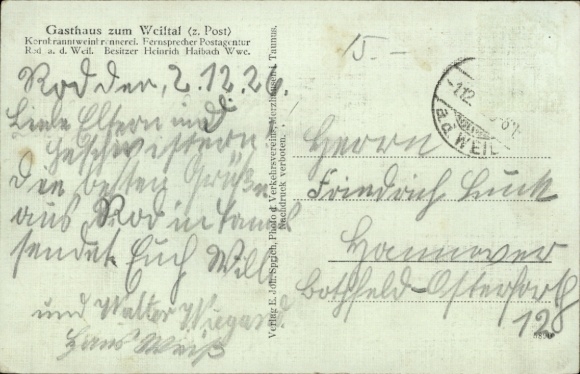 Gasthaus zum Weiltal (z. Post)
Kornbranntweinbrennerei. Fernsprecher Postagentur
Rod a. d. Weil. Besitzer Heinrich Haibach Wwe.
15.-
Rod den, 2.12.26.
Liebe Eltern und
Geschwister
Den besten Grüße
aus Rod im Taunus
sendet Euch Willi
und Walter Wiegand.
Hans Weiß
Verlag E. Joh. Photo d. Verkehrsvereins, Merzhausen i. Taunus.
Nachdruck verboten.
-1.12.
a.d. WEIL
Herrn
Friedrich Luck
Hannover
Bothfeld-Osterforth
128